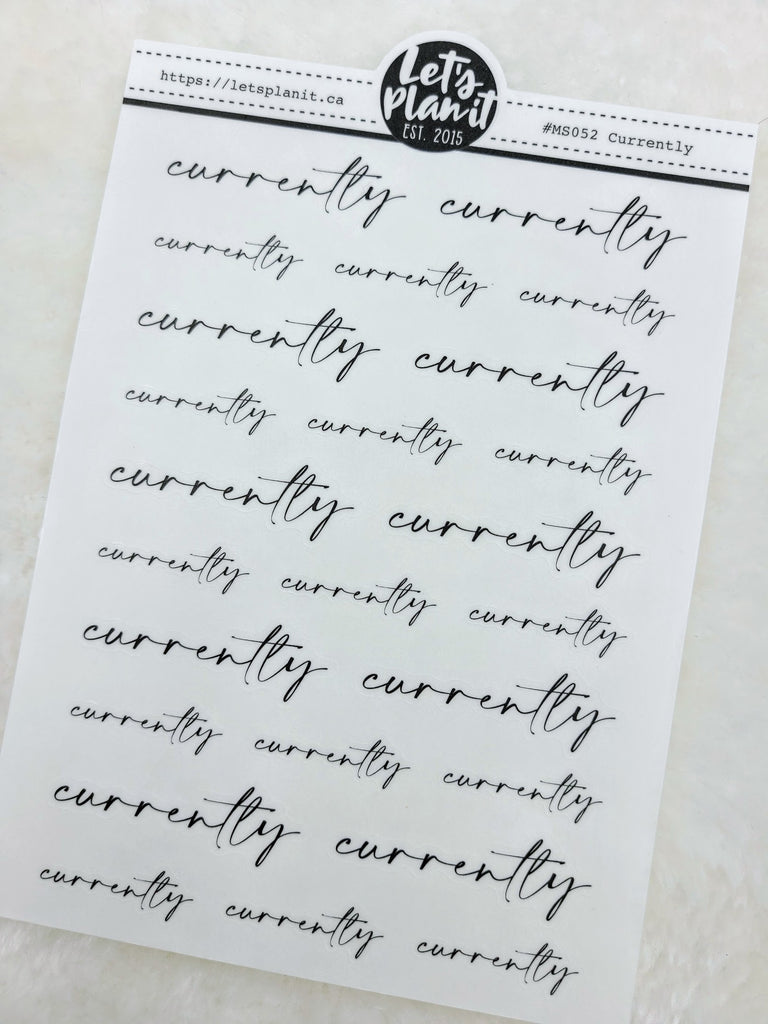 https://letsplanit.ca
Let's
Plan it
EST. 2015
#MS052 Currently
currently currently
currently currently currently
currently currently
currently currently currently
currently currently
currently currently currently
currently currently
currently currently currently
currently currently
currently currently currently